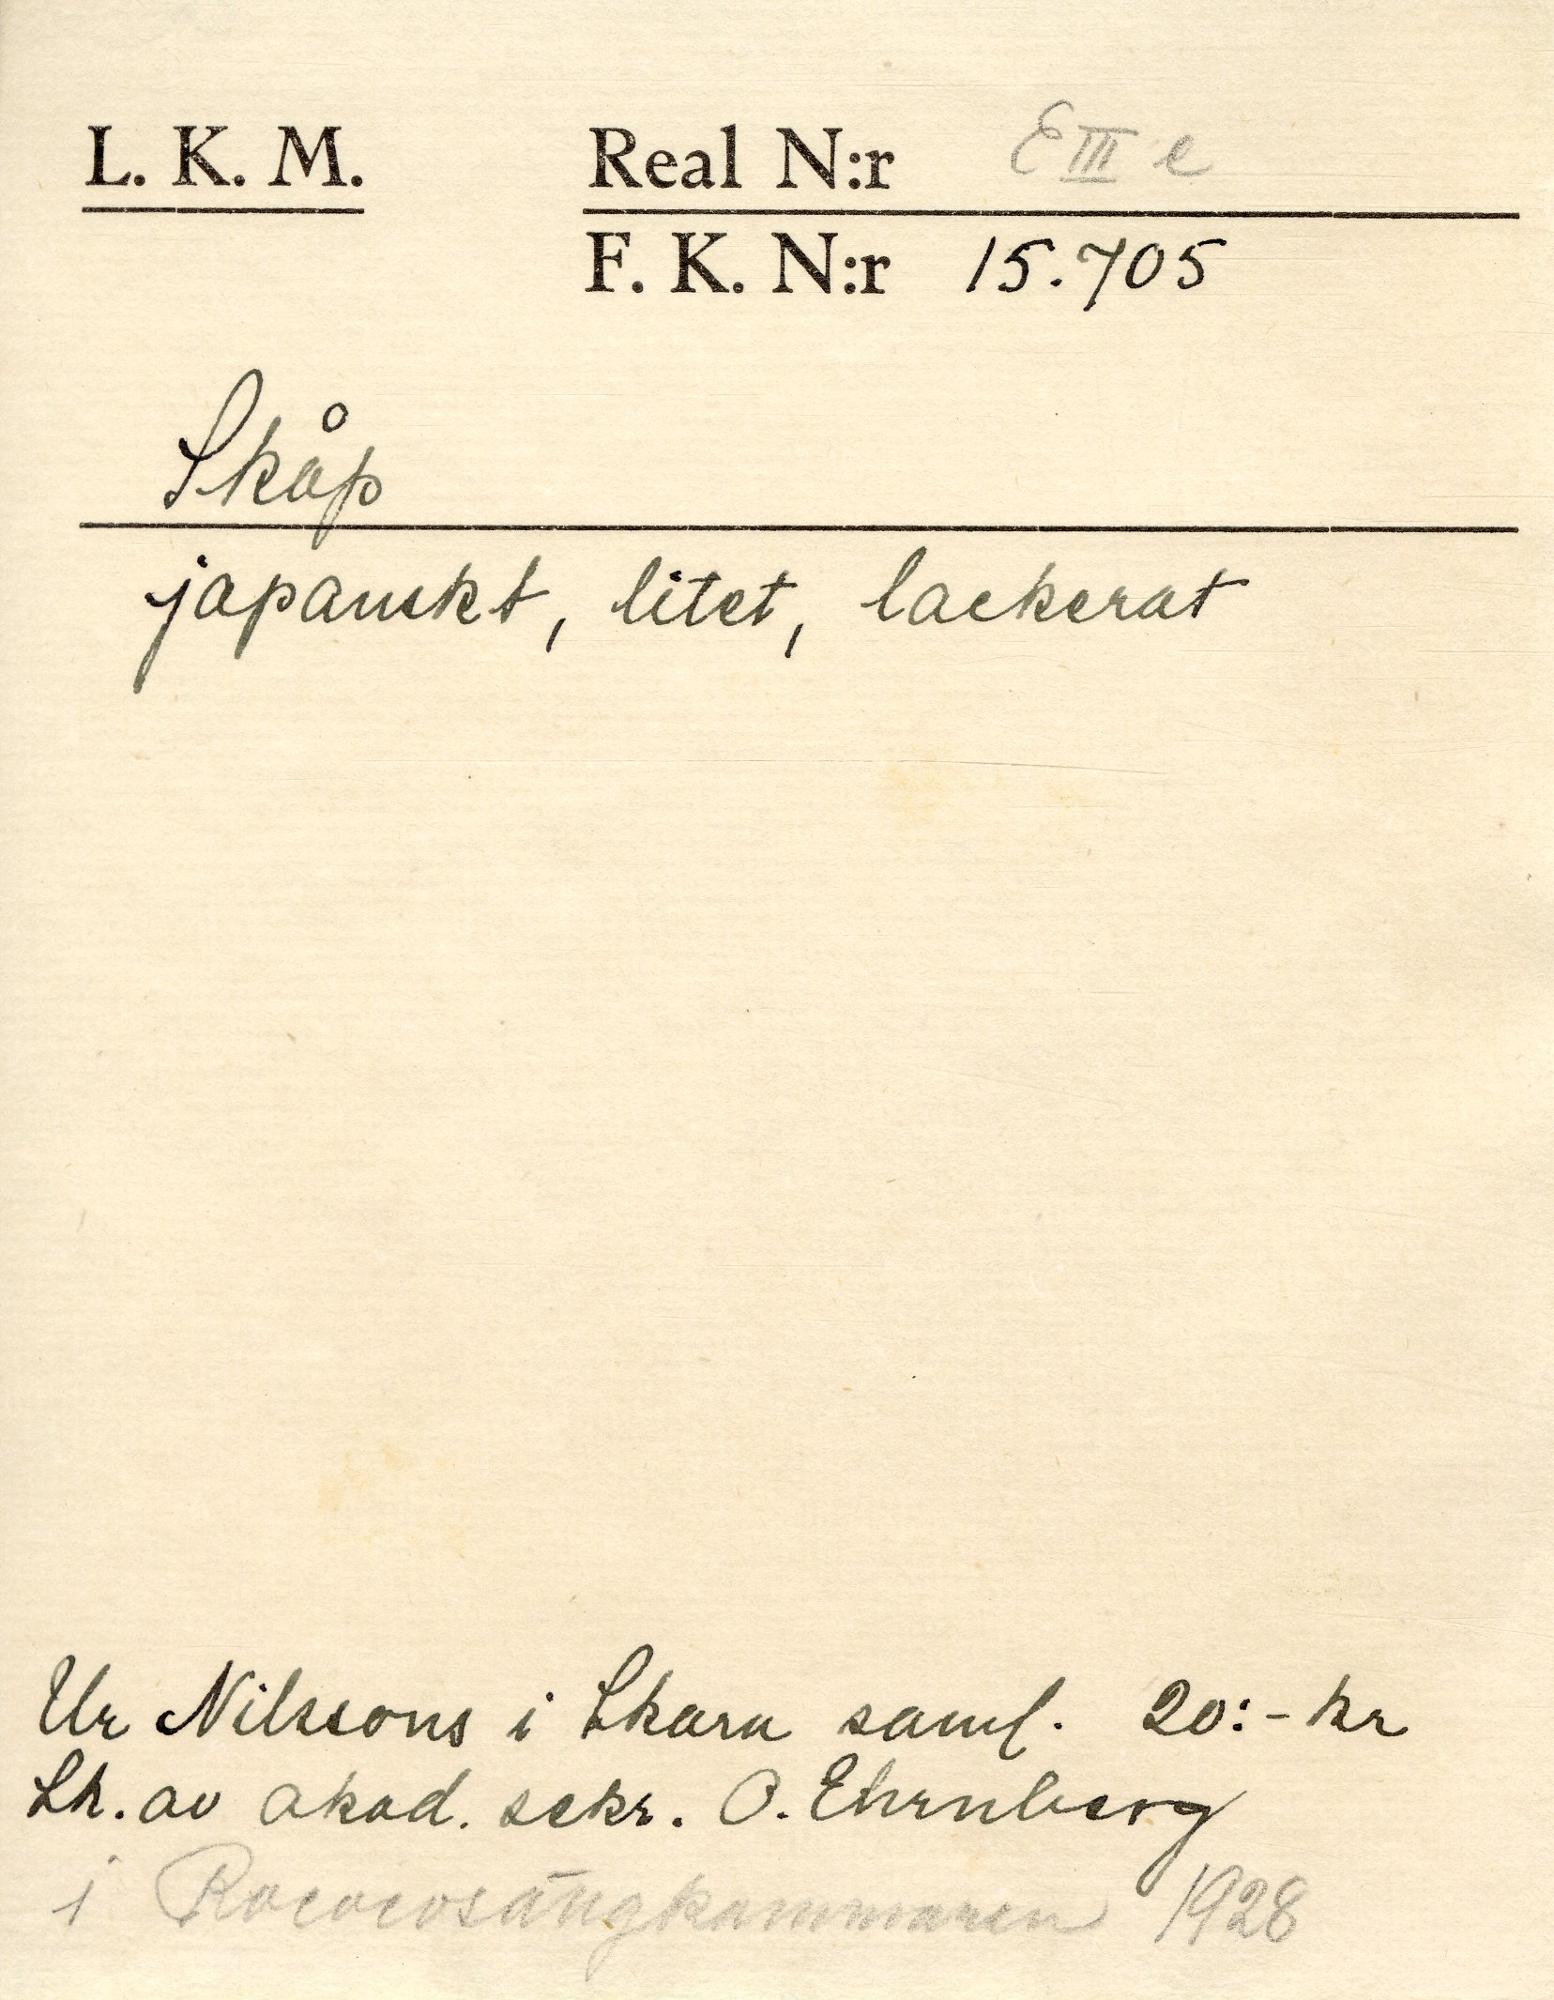 L. K. M. Real N:r E III e
F. K. N:r 15.705
Skåp
japanskt, litet, lackerat
Ur Nilssons i Skara saml. 20:- kr
Sk. av akad. sekr. O. Ehrnberg
i Rococosängkammaren 1928